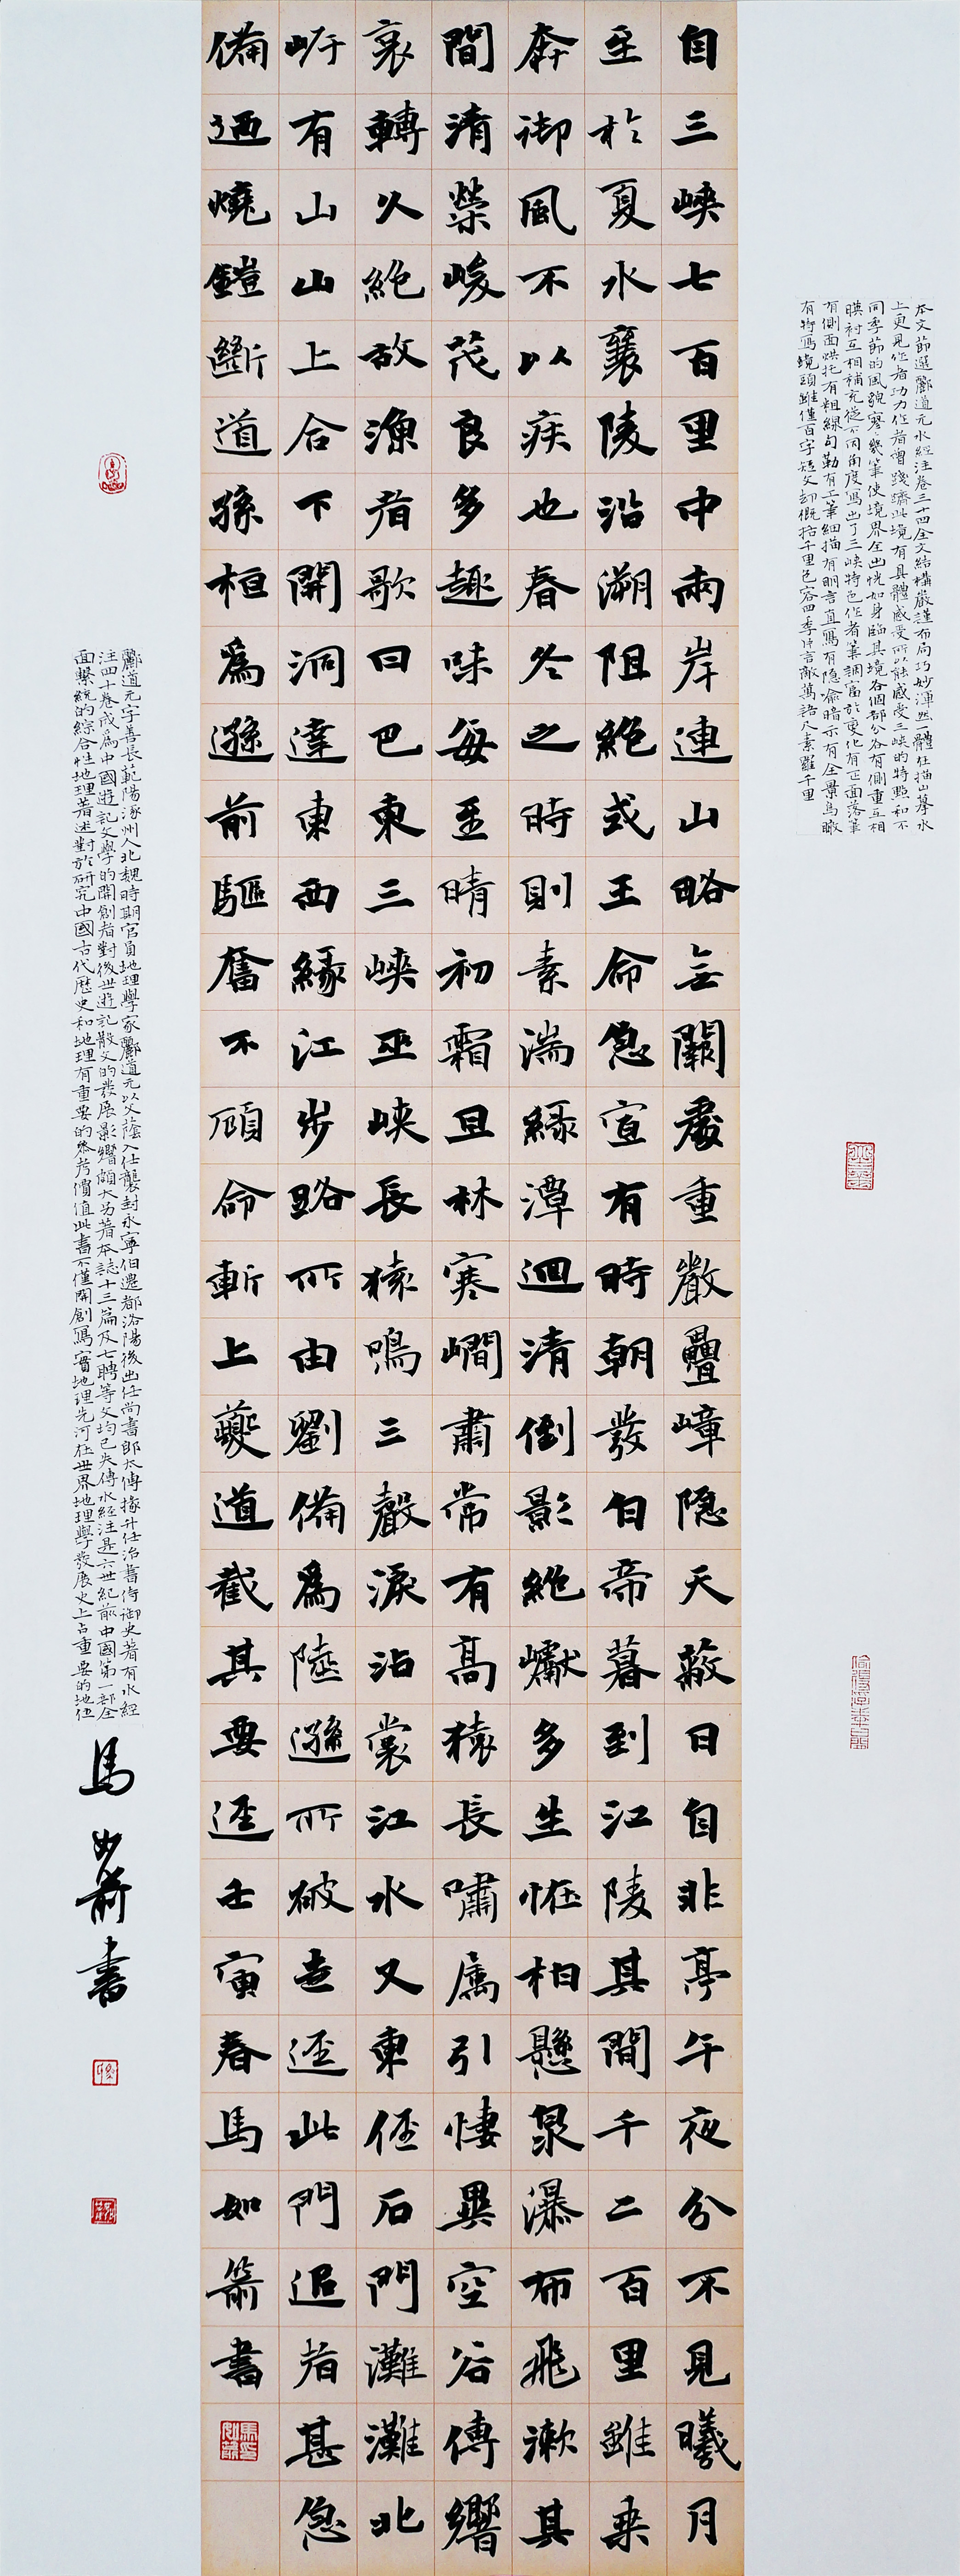 本文節選酈道元水經注卷三十四全文結構嚴謹布局巧妙渾然一體在描山摹水
上更見作者功力作者曾踐躋此境有具體感受所以能感受三峽的特點和不
同季節的風貌寥寥幾筆使境界全出恍如身臨其境各個部分各有側重互相
暎襯互相補充從不同角度寫出了三峽特色作者筆調富於變化有正面落筆
有側面烘托有粗線勾勒有工筆細描有明言直寫有隱喻暗示有全景鳥瞰
有特寫境頭雖僅百字短文却概括千里色容四季片言敵萬語尺素羅千里
自三峽七百里中兩岸連山略無闕處重巖疊嶂隱天蔽日自非亭午夜分不見曦月
至於夏水襄陵沿溯阻絕或王命急宣有時朝發白帝暮到江陵其間千二百里雖乘
奔御風不以疾也春冬之時則素湍綠潭迴清倒影絕巘多生怪柏懸泉瀑布飛漱其
間清榮峻茂良多趣味每至晴初霜旦林寒澗肅常有高猿長嘯屬引悽異空谷傳響
哀轉久絕故漁者歌曰巴東三峽巫峽長猿鳴三聲淚沾裳江水又東徑石門灘灘北
岸有山山上合下開洞達東西緣江步路所由劉備為陸遜所破走逕此門追者甚急
備迺燒鎧斷道孫桓為遜前驅奮不顧命斬上夔道截其要逕壬寅春馬如箭書
酈道元字善長範陽涿州人北魏時期官員地理學家酈道元以父蔭入仕襲封永寧伯遷都洛陽後出任尚書郎太傅掾升任治書侍御史著有水經
注四十卷成為中國遊記文學的開創者對後世遊記散文的發展影響頗大另著本誌十三篇及七聘等文均已失傳水經注是六世紀前中國第一部全
面繫統的綜合性地理著述對於研究中國古代歷史和地理有重要的參考價值此書不僅開創寫實地理先河在世界地理學發展史上占重要的地位
馬如箭書